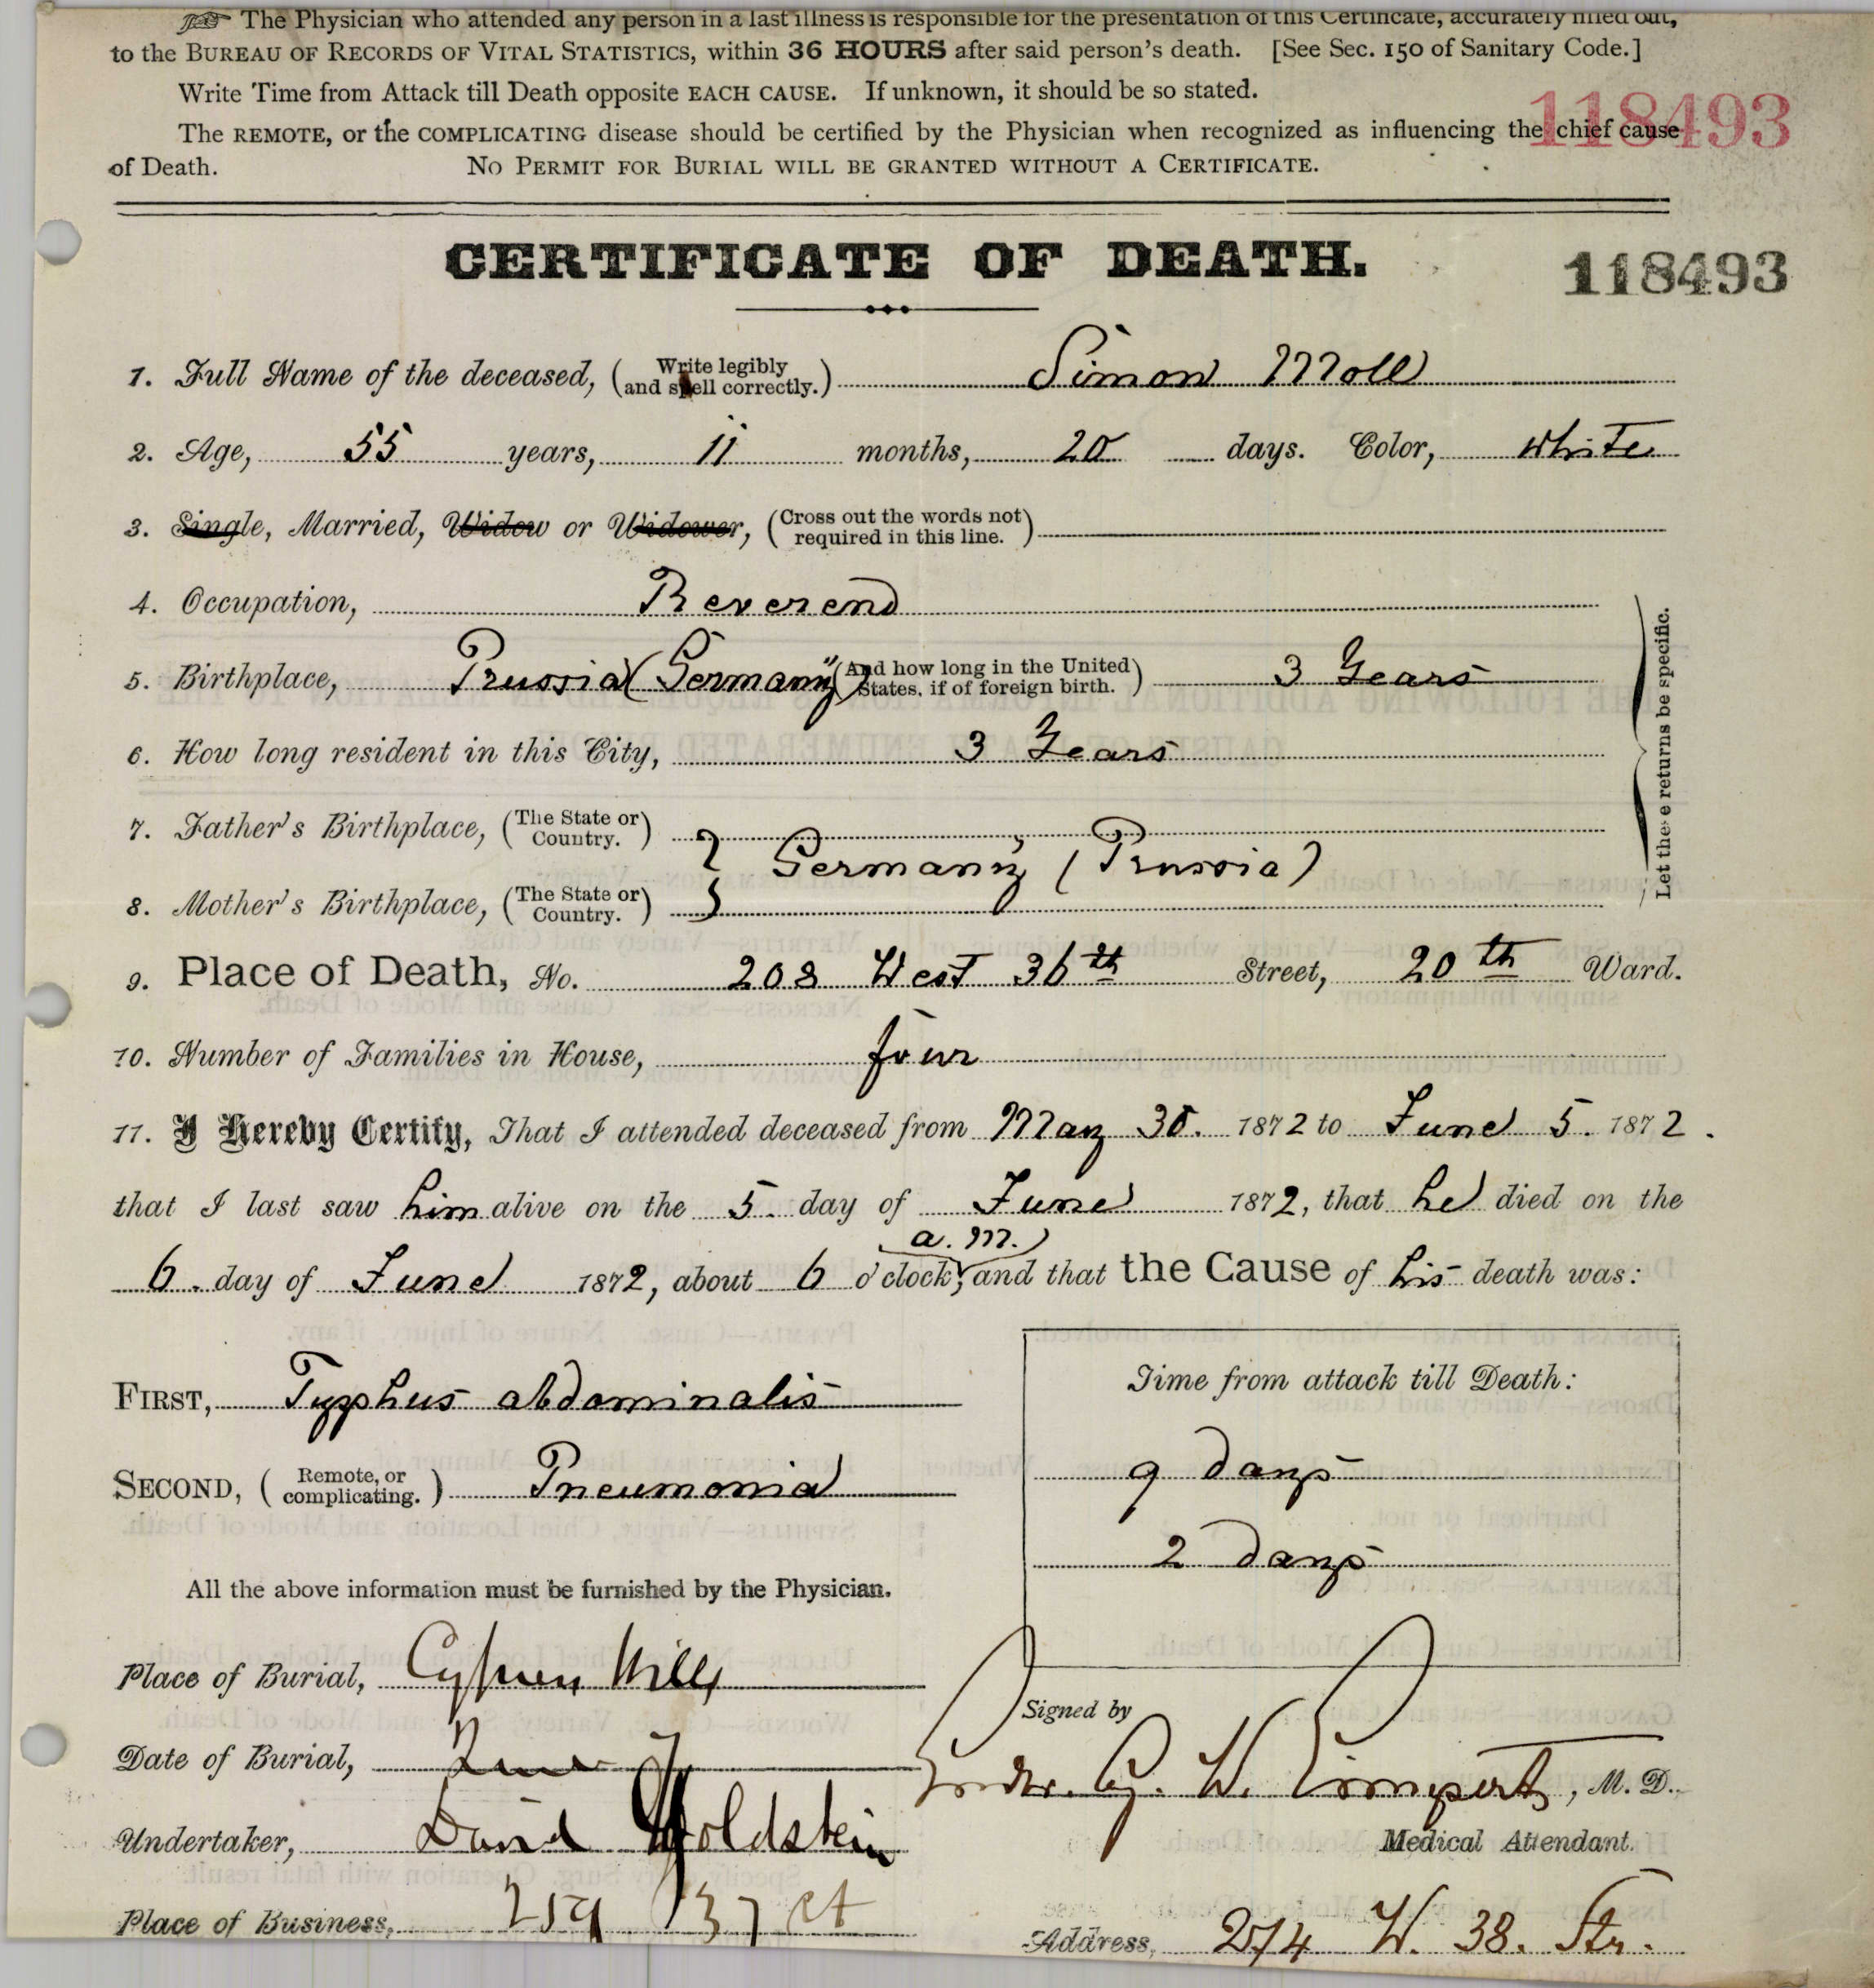 ☞ The Physician who attended any person in a last illness is responsible for the presentation of this Certificate, accurately filled out,
to the BUREAU OF RECORDS OF VITAL STATISTICS, within 36 HOURS after said person's death. [See Sec. 150 of Sanitary Code.]
Write Time from Attack till Death opposite EACH CAUSE. If unknown, it should be so stated.
The REMOTE, or the COMPLICATING disease should be certified by the Physician when recognized as influencing the chief cause
of Death. NO PERMIT FOR BURIAL WILL BE GRANTED WITHOUT A CERTIFICATE.
118493
CERTIFICATE OF DEATH.
118493
1. Full Name of the deceased, (Write legibly and spell correctly.) Simon Moll
2. Age, 55 years, 11 months, 20 days. Color, White
3. Single, Married, Widow or Widower, (Cross out the words not required in this line.)
4. Occupation, Reverend
5. Birthplace, Prussia (Germany) (And how long in the United States, if of foreign birth.) 3 Years
6. How long resident in this City, 3 Years
7. Father's Birthplace, (The State or Country.)
} Germany (Prussia)
8. Mother's Birthplace, (The State or Country.)
Let these returns be specific.
9. Place of Death, No. 208 West 36th Street, 20th Ward.
10. Number of Families in House, four
11. I Hereby Certify, That I attended deceased from May 30. 1872 to June 5. 1872.
that I last saw him alive on the 5. day of June 1872, that he died on the
a. m.
6. day of June 1872, about 6 o'clock, and that the Cause of his death was:
Time from attack till Death:
FIRST, Typhus abdominalis
9 days
SECOND, (Remote, or complicating.) Pneumonia
2 days
All the above information must be furnished by the Physician.
Place of Burial, Cypress Hills
Signed by
Date of Burial, June 7
G. W. , M. D.
Undertaker, David Goldstein
Medical Attendant.
Place of Business, 259 W 37 st
Address, 274 W. 38. Str.